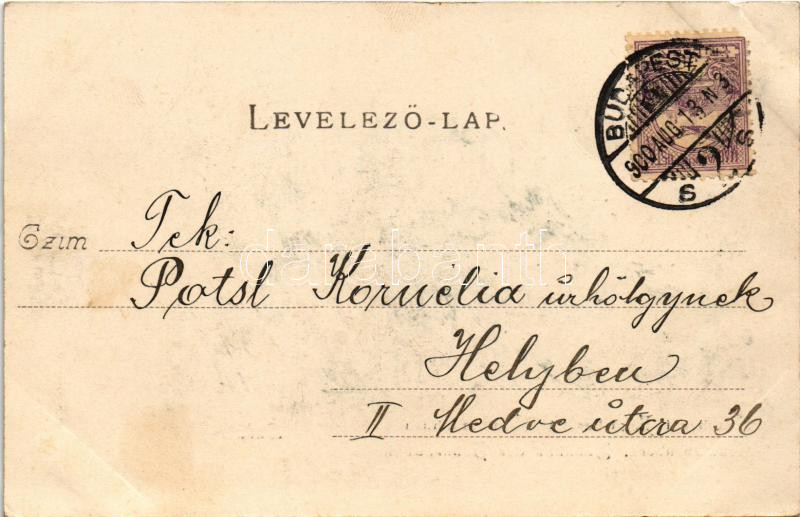 LEVELEZŐ-LAP.
BUDAPEST
900 AUG. 13 N 3
S
Czim Tek:
Potsl Kornélia úrhölgynek
Helyben
II Medve útcza 36
darabanth